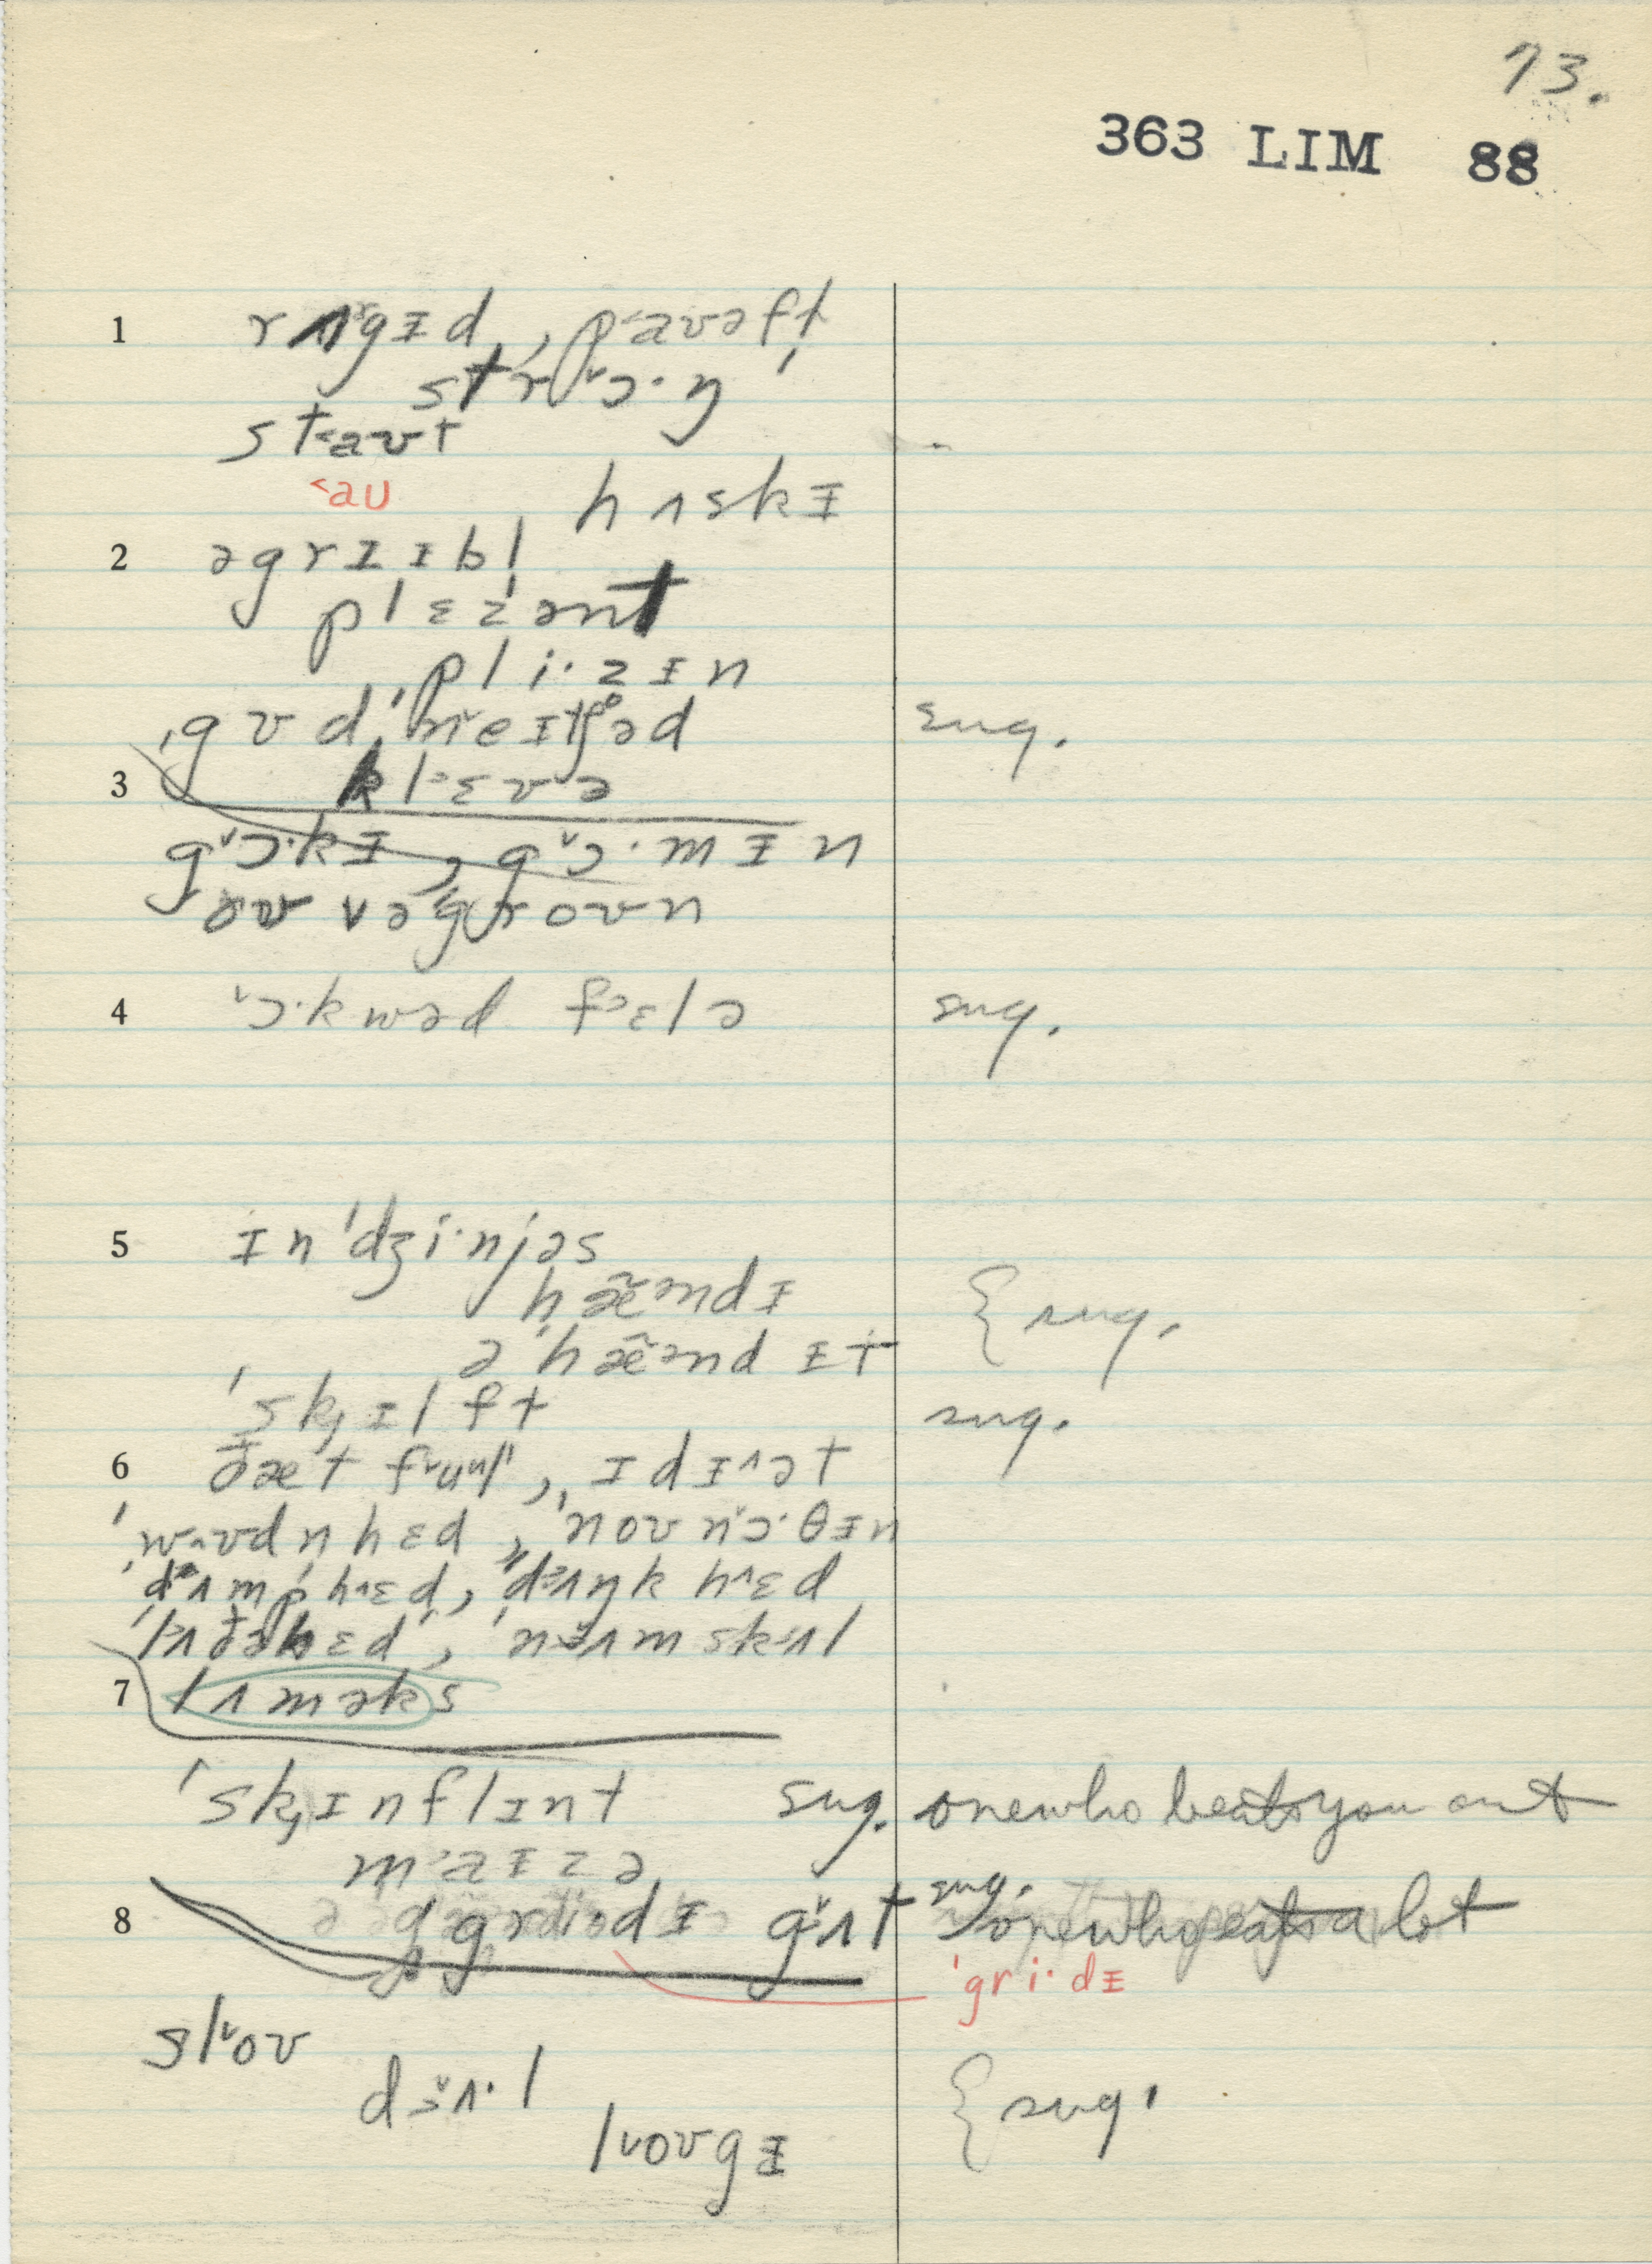 73.
363 LIM 88
1 rʌgɪd, p˂aʊəfḷ
strɔ˞·ŋ
st˂aʊt
˂aʊ
hʌskɪ
2 əgrɪɪbḷ
plɛzənt
pli·zɪn
ˌgʊdˈneɪtʃəd sug.
3 klɛvə
g˅ɔ·kɪ, g˅ɔ·mɪn
oʊvəgroʊn
4 ˅ɔ·kwəd f˃ɛlə sug.
5 ɪnˈdʒi·njəs
hæ̃əndɪ { sug.
əˈhæ̃ənd ɪt
ˈsk̟ɪlft sug.
6 ðæt f˅uul, ɪdɪ^ət
ˈwʊdṇhɛd, ˈnoʊn˅ɔ·θɪn
ˈdʌmp h^ɛd, ˈdʌŋk h^ɛd
ˈlʌðəhɛd, ˈnʌmskʌl
7 lʌməks
ˈsk̟ɪnflɪnt sug. one who beats you out
m˂aɪzə
8 g˅ʌt sug. one who eats a lot
ˈgri·dɪ
sl˅oʊ
dɜ˅ʌ·l { sug.
l˅oʊgɪ